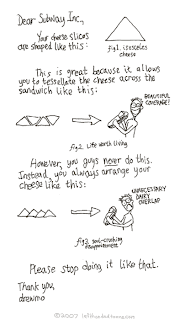 Dear Subway Inc.,
Your cheese slices
are shaped like this:
fig 1. isosceles
cheese
This is great because it allows
you to tessellate the cheese across the
sandwich like this:
BEAUTIFUL
COVERAGE!
fig 2. Life worth living
However, you guys never do this.
Instead, you always arrange your
cheese like this:
UNNECESSARY
DAIRY
OVERLAP
fig 3. soul-crushing
disappointment
Please stop doing it like that.
Thank you,
drewmo
©2007